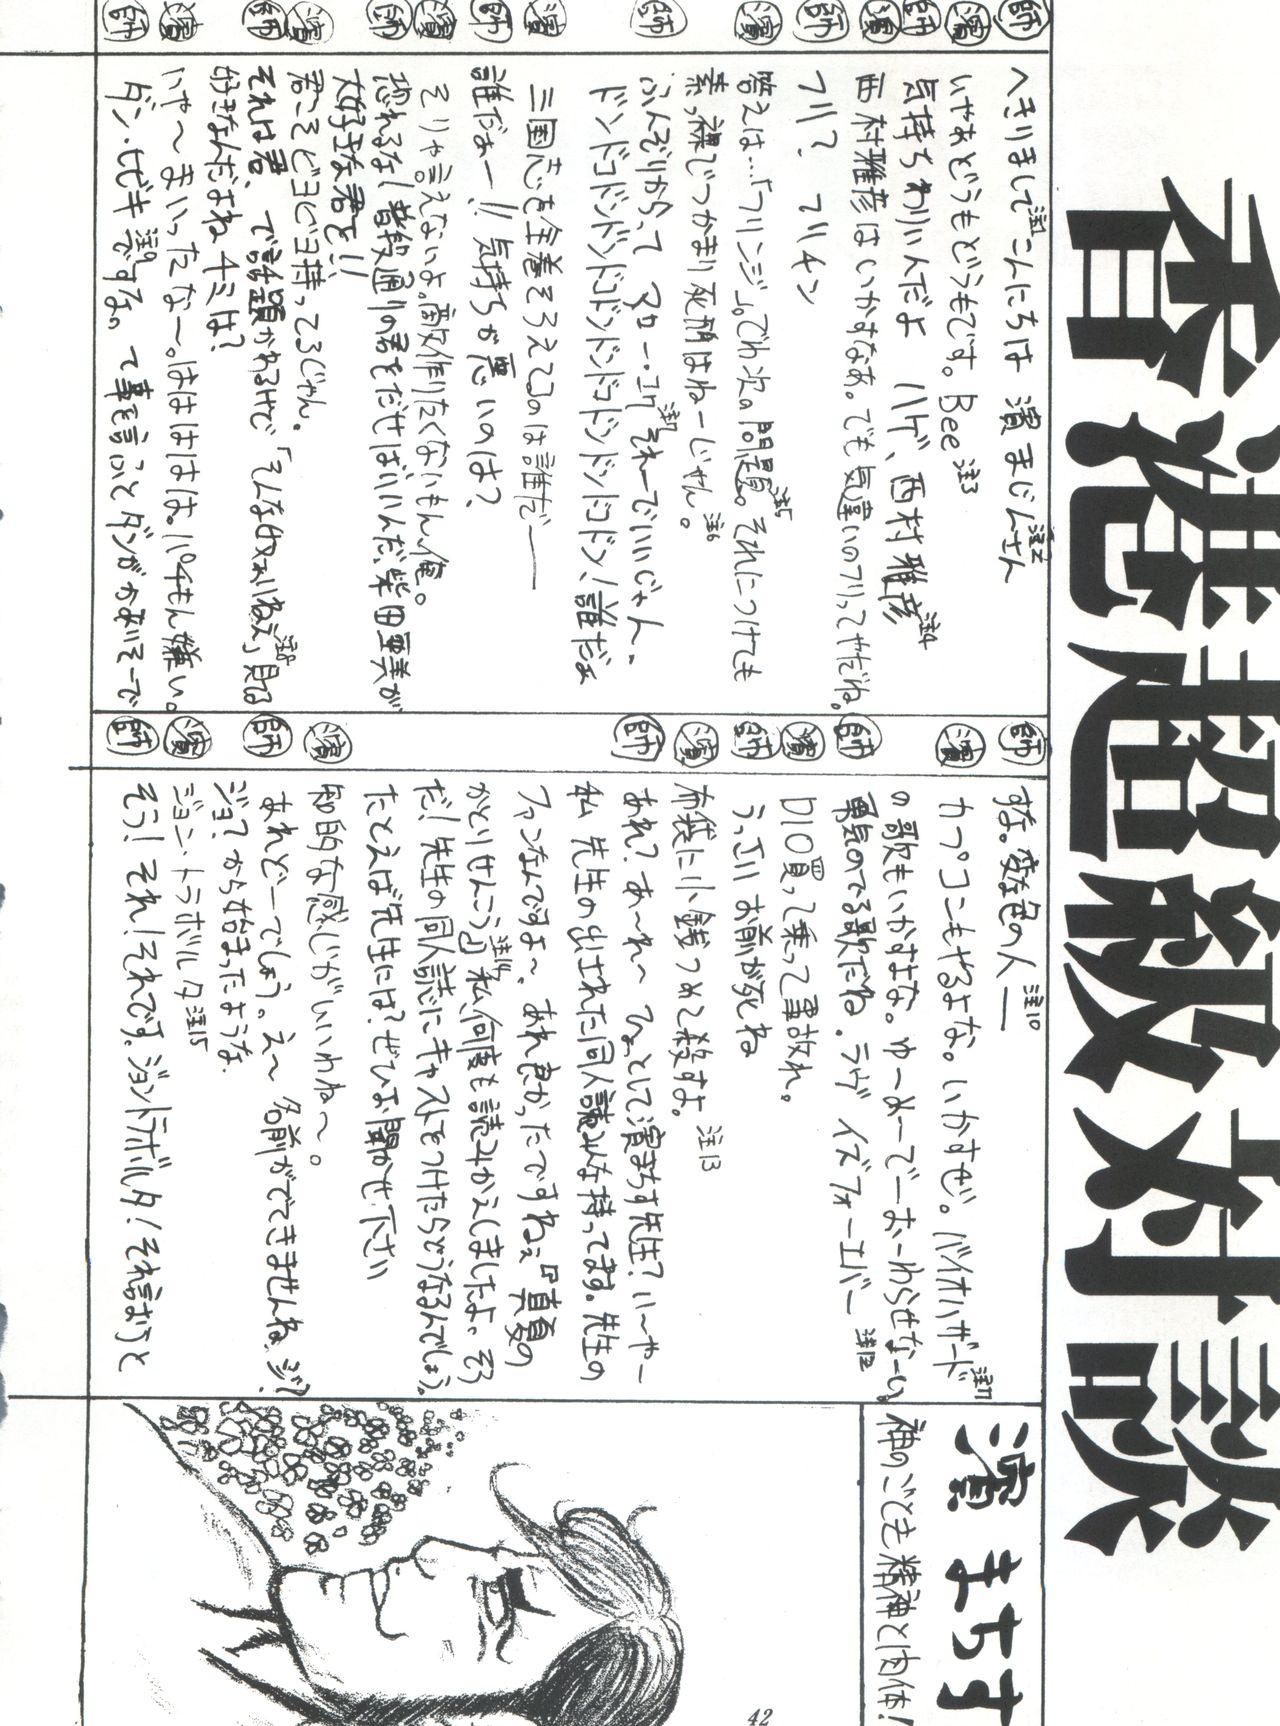 香港超級対談
師 へきりまして注1こんにちは 濱まじん注2さん
濱 いやあどうもどうもです。Bee注3
師 気持ちわりいんだよ ハゲ、西村雅彦注4
濱 西村雅彦はいかすなあ。でも気違いのフリってやだね。
師 フリ? フリチン
濱 答えは…「フリンジ」。でわ次の問題。注5それにつけても
素っ裸でつかまり死刑はねーじゃん。注6
師 ふんぞりかえって マロー・コワ注7それーでいいじゃん。
ドンドコドンドコドンドコドンドコドン!誰だぁ
濱 三国志を全巻そろえてるのは誰だ――
師 誰だぁー!!気持ちが悪いのは?
濱 そりゃ言えないよ。敵作りたくないもん俺。
師 恐れるな!普段通りの君をだせばいいんだ、柴田亜美が
大好きな君を!!
濱 君こそビヨビヨ持ってるじゃん。
師 それは君、で話題かわるけど「そんな奴ぁいねえ」注8見てる
好きなんだよね、チミは?
濱 いや〜まいったな〜。はははは。パチもん嫌い。
師 ダン・ヒビキ注9ですな。て事を言ふとダンがかわいそーで
師 すな。変な色の人―注10
濱 カプコンもやるよな。いかすぜ。バイオハザード注11
の歌もいかすよな。ゆーめーでーおーわらせなーい
師 勇気のでる歌だね。ラヴ イズ フォーエバー注12
濱 DIO買って乗って事故れ。
師 うっさい お前が死ね
濱 布袋に小銭つめて殺すよ。注13
師 あれ?あ〜れ〜 ひょっとして濱まちす先生?い〜や〜
私 先生の出された同人誌みんな持ってます。先生の
ファンなんですよ〜、あれ良かったですねぇ『真夏の
かとりせんこう』注14私、何度も読みかえしましたよ。そう
だ!先生の同人誌にキャストをつけたらどうなるんでしょう。
たとえば先生には?ぜひお聞かせ下さい
濱 知的な感じがいいわね〜。
師 あれどーでしょう。え〜 名前がでてきませんね、ジ?
ジョ?から始まったような
濱 ジョン・トラボルタ注15
師 そう!それ!それです。ジョントラボルタ!それ言おうと
濱まちす
神のごとき精神と肉体!
42